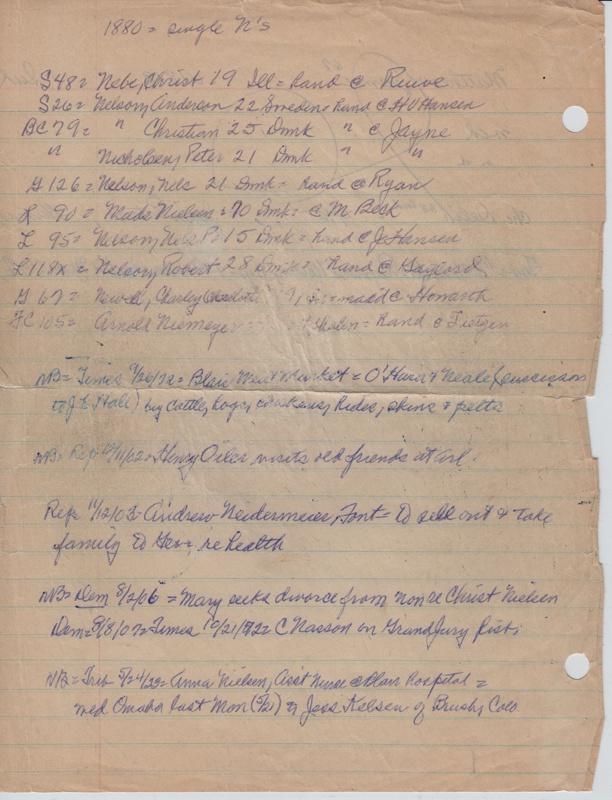 1880 = single N's
S48 = Nebe, Christ 19 Ill = hand @ Reeve
S26 = Nelson, Anderson 22 Sweden = hand @ H V Hansen
BC 79 = " Christian 25 Dmk " @ Jayne
" Nicholsen, Peter 21 Dmk " "
G 126 = Nelson, Nels 21 Dmk = hand @ Ryan
L 90 = Mads Nielsen = 70 Dmk = @ M. Beck
L 95 = Nelson, Nels P = 15 Dmk = hand @ J Hansen
L 118x = Nelson, Robert 28 Dmk = hand @ Gaylord
G 67 = Newell, Charley (Charlotte) maid @ Howarth
FC 105 = Arnold Niemeyer = hand @ Tietgen
NB = Times 9/26/72 = Blair Meat Market = O'Hara & Neale (succession
to J E Hall) buy cattle, hogs, chickens, hides, skins & pelts
NB = Rep 10/11/02 = Henry Oiler visits old friends at Arl.
Rep 11/12/03 = Andrew Neidermeier, Font = to sell out & take
family to re health
NB = Dem 8/2/06 = Mary seeks divorce from nonre Christ Nielsen
Dem = 9/8/07 = Times 10/21/1922 C Nasson on Grand Jury list
NB = Trib 5/24/23 = Anna Nielsen, Ass't Nurse @ Blair Hospital =
wed Omaha last Mon (5/21) to Jess Kelsen of Brush, Colo